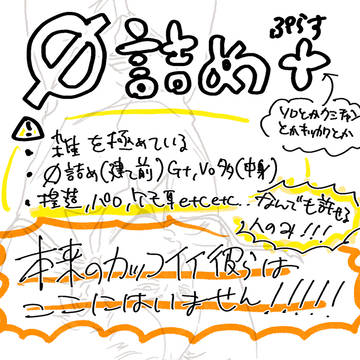 ぷらす
Ø詰め+
ソロとかクミチャン
とかキッカケとか
・雑を極めている
・Ø詰め(建て前)Gt,Vo多(中身)
・捏造,パロ,ケモ耳etcetc...
なんでも許せる
人のみ!!!
本来のカッコイイ彼らは
ここにはいません!!!!!